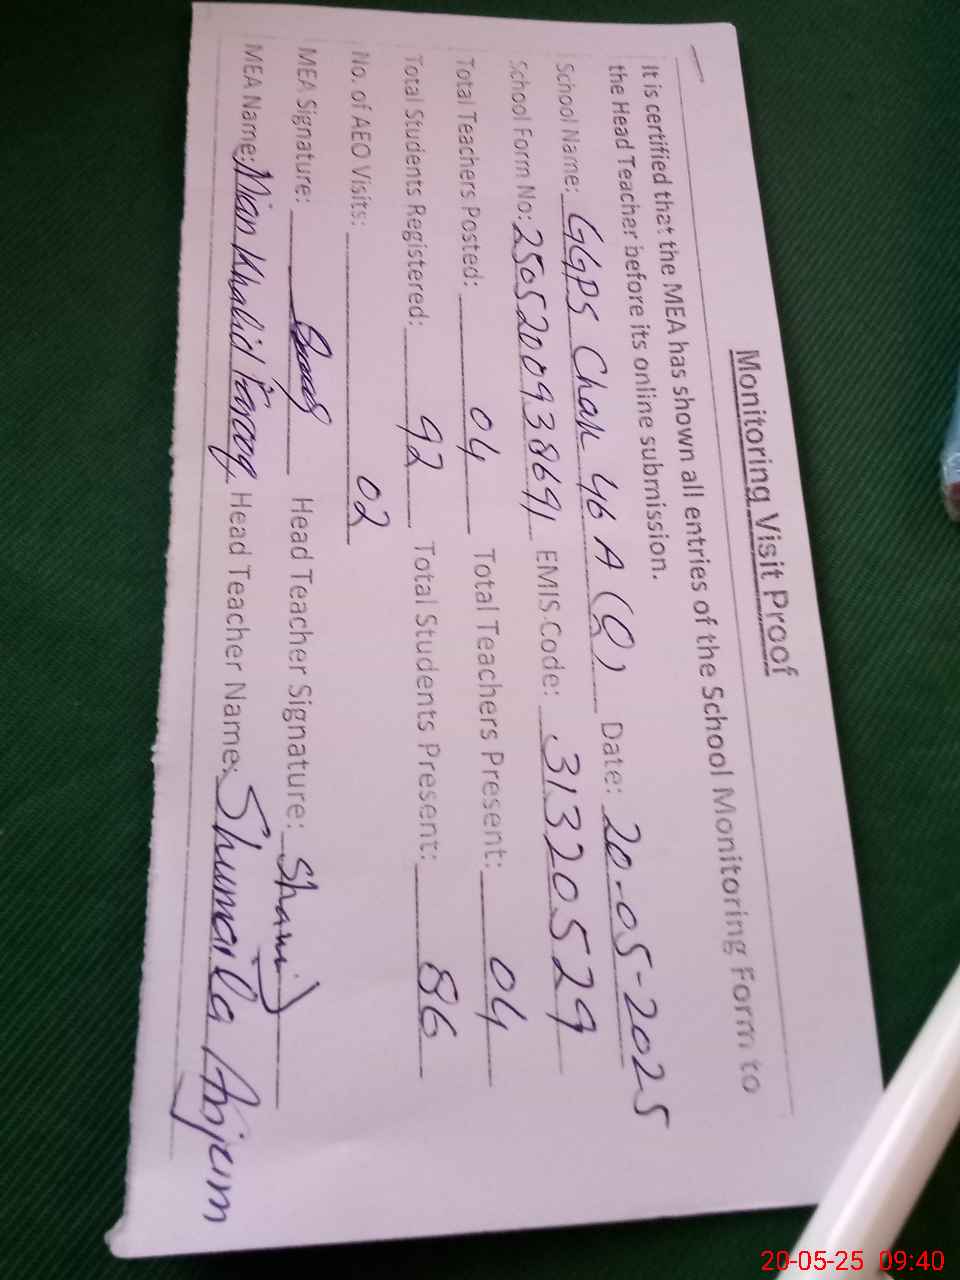 Monitoring Visit Proof
It is certified that the MEA has shown all entries of the School Monitoring Form to
the Head Teacher before its online submission.
School Name: GGPS Chak 46 A (Q) Date: 20-05-2025
School Form No: 25052009938691 EMIS Code: 31320529
Total Teachers Posted: 04 Total Teachers Present: 04
Total Students Registered: 92 Total Students Present: 86
No. of AEO Visits: 02
MEA Signature: Head Teacher Signature:
MEA Name: Mian Khalid Farooq Head Teacher Name: Shumaila Anjum
20-05-25 09:40